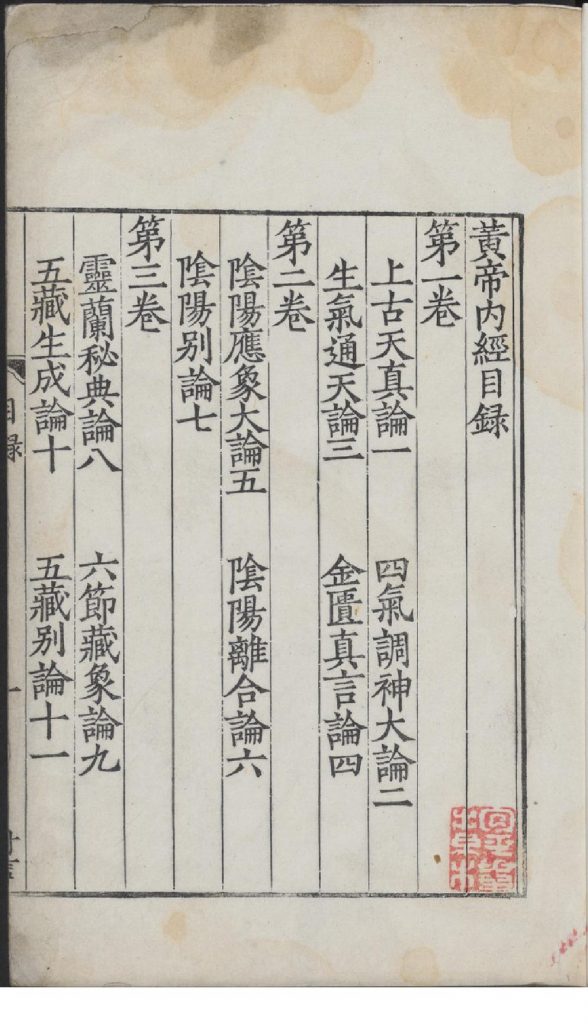 黃帝內經目錄
第一卷
上古天真論一 四氣調神大論二
生氣通天論三 金匱真言論四
第二卷
陰陽應象大論五 陰陽離合論六
陰陽别論七
第三卷
靈蘭秘典論八 六節藏象論九
五藏生成論十 五藏别論十一
目錄
一